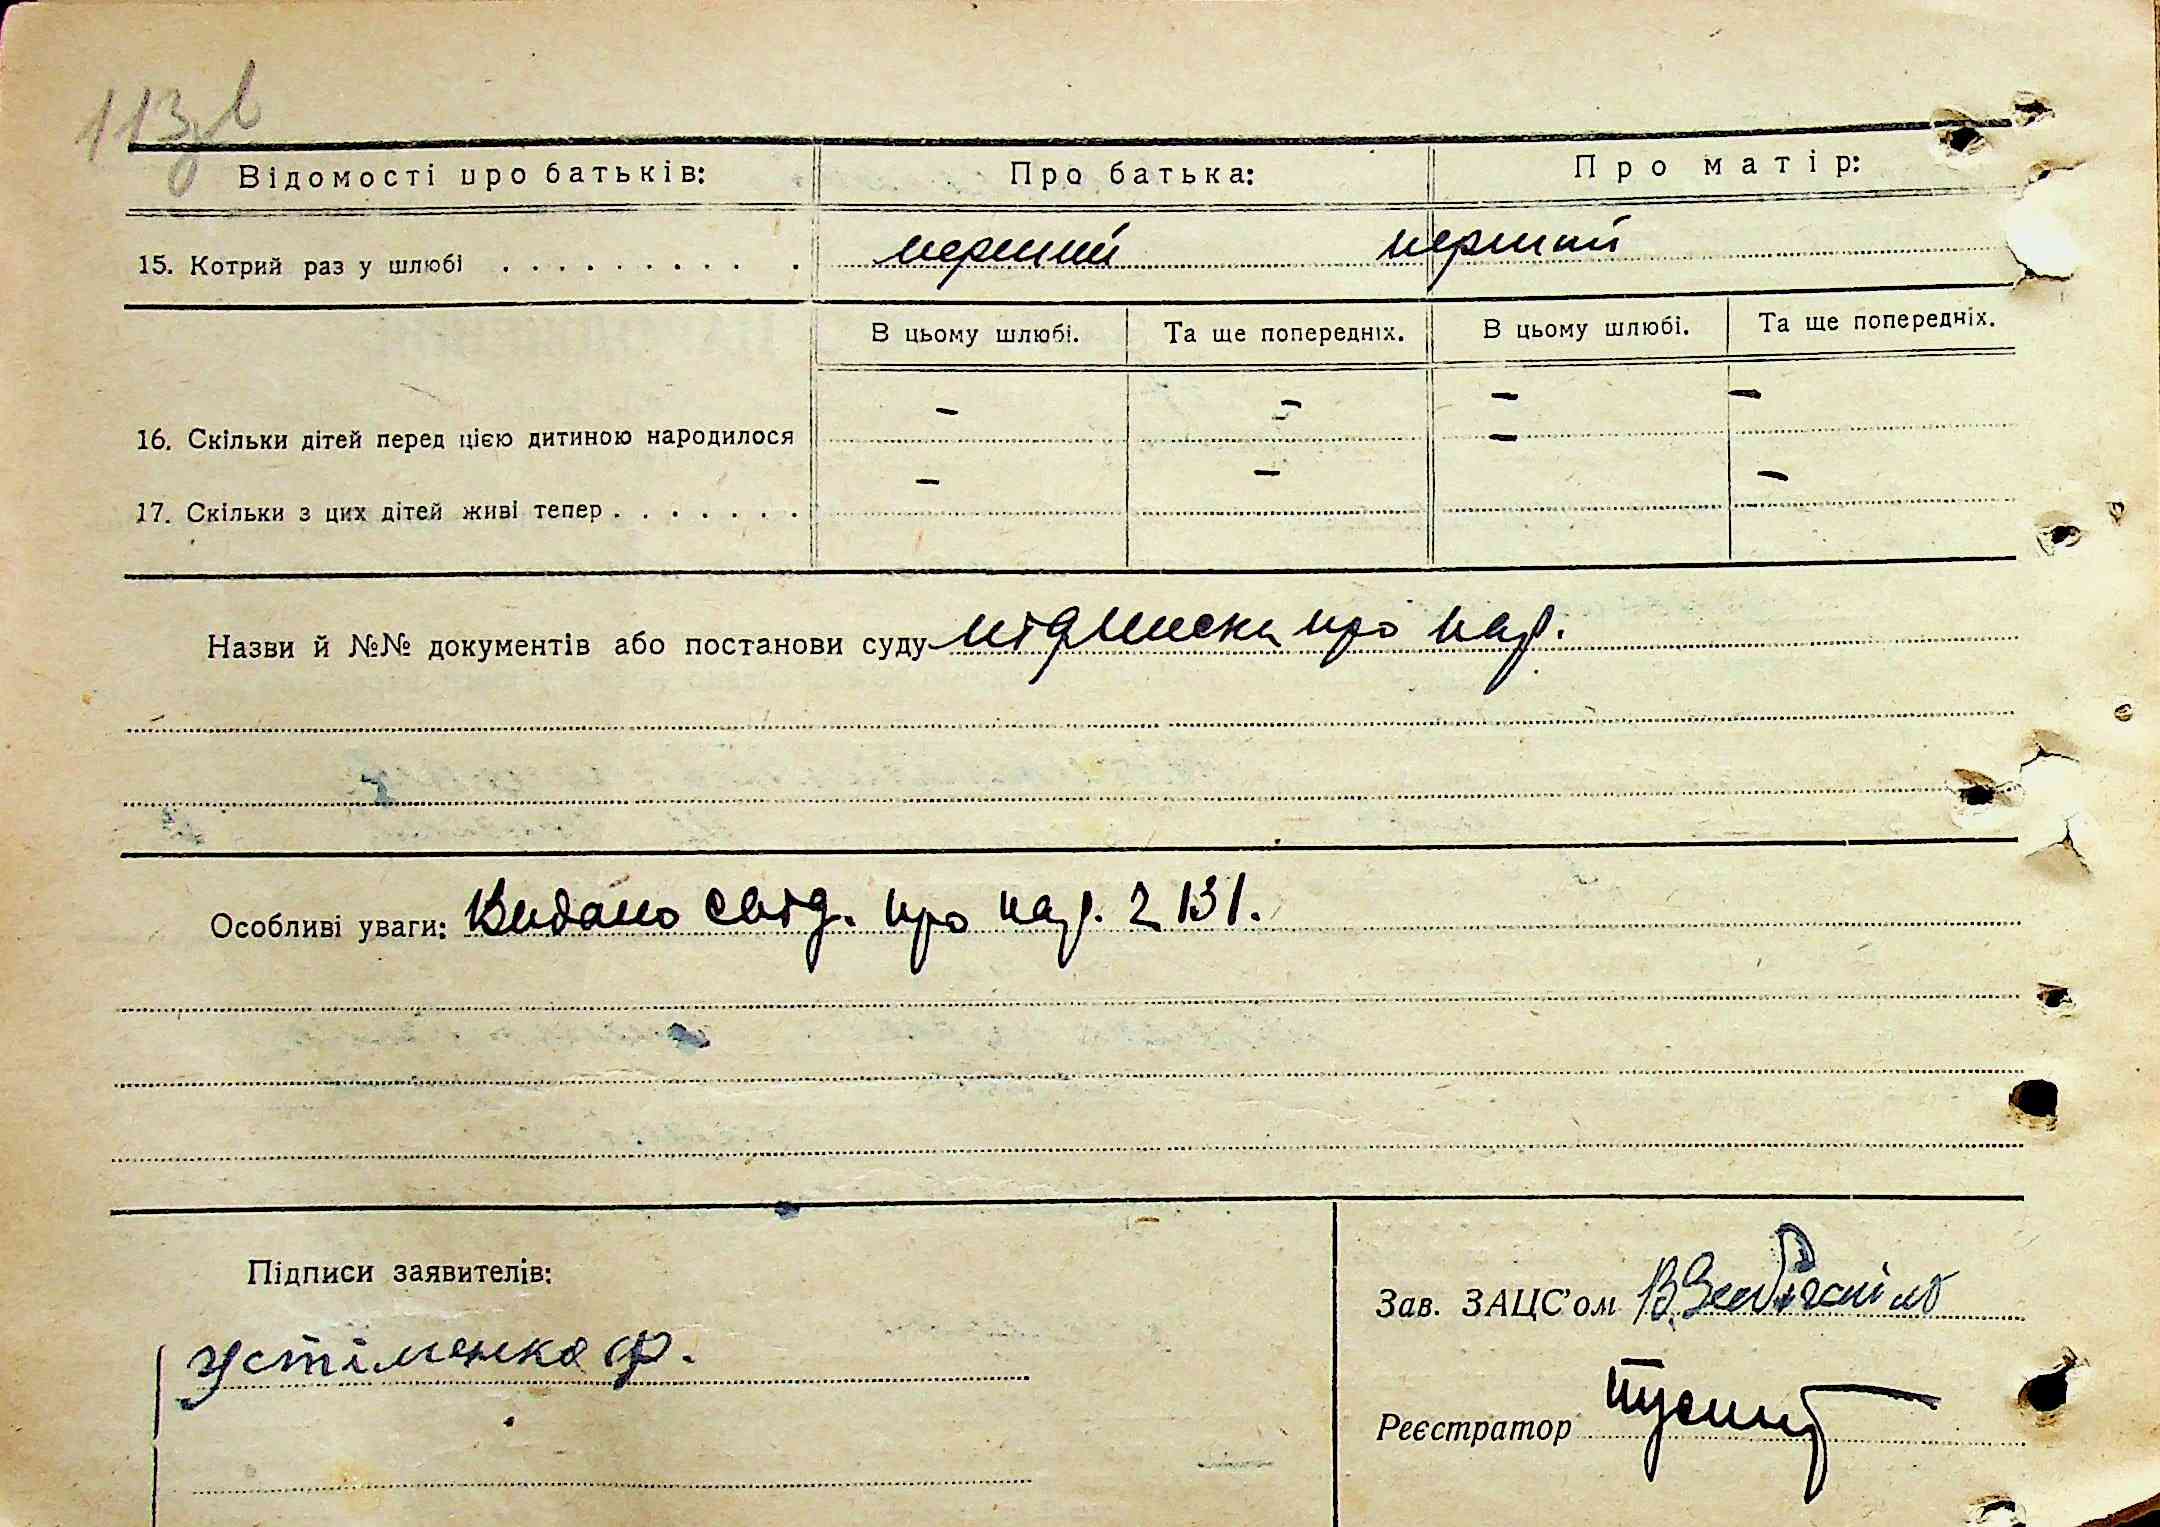 113
Відомості про батьків: Про батька: Про матір:
15. Котрий раз у шлюбі . . . . . . . . . . перший перший
В цьому шлюбі. Та ще попередніх. В цьому шлюбі. Та ще попередніх.
– – – –
16. Скільки дітей перед цією дитиною народилося –
– – –
17. Скільки з цих дітей живі тепер . . . . . . .
Назви й №№ документів або постанови суду підписка про нар.
Особливі уваги: Видано свід. про нар. 2131.
Підписи заявителів:
Зав. ЗАЦС'ом
Устіменко Ф.
Реєстратор